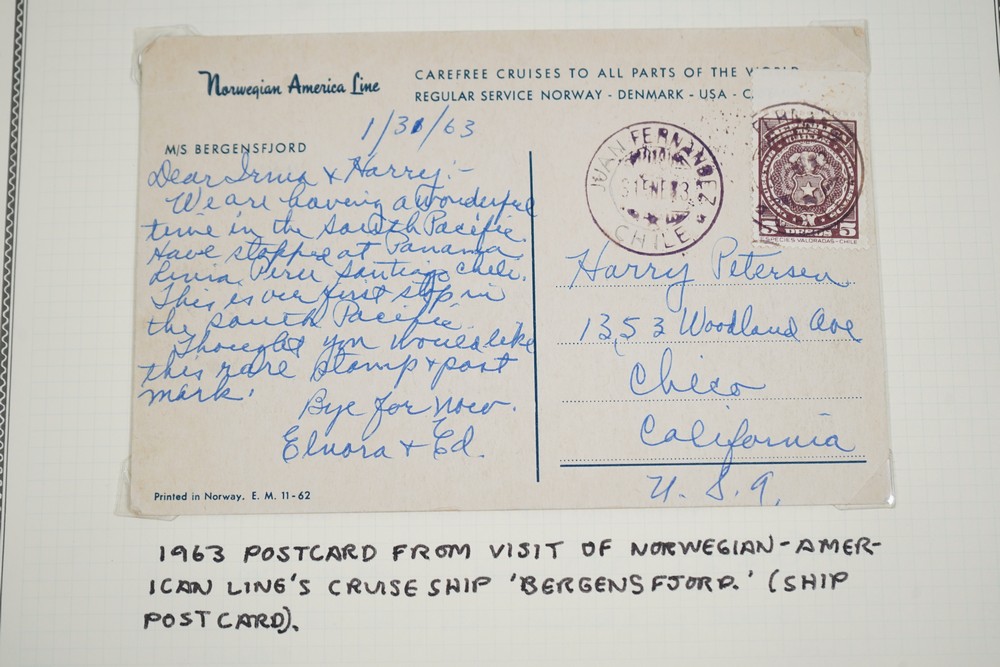 Norwegian America Line
CAREFREE CRUISES TO ALL PARTS OF THE WORLD
REGULAR SERVICE NORWAY - DENMARK - USA - C
1/31/63
M/S BERGENSFJORD
Dear Irma & Harry:-
We are having a wonderful
time in the South Pacific.
Have stopped at Panama
Lima Peru Santiago Chili.
This is our first stop in
the South Pacific
Thought you would like
this rare stamp & post
mark.
Bye for now.
Elnora & Ed.
Printed in Norway. E. M. 11-62
JUAN FERNANDEZ
CHILE
5 PESOS 5
ESPECIES VALORADAS - CHILE
Harry Petersen
1353 Woodland Ave
Chico
California
U. S. A.
1963 POSTCARD FROM VISIT OF NORWEGIAN-AMER-
ICAN LINE'S CRUISE SHIP 'BERGENSFJORD.' (SHIP
POSTCARD).